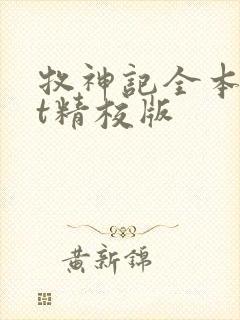 牧神記全本
t精校版
黄新錦